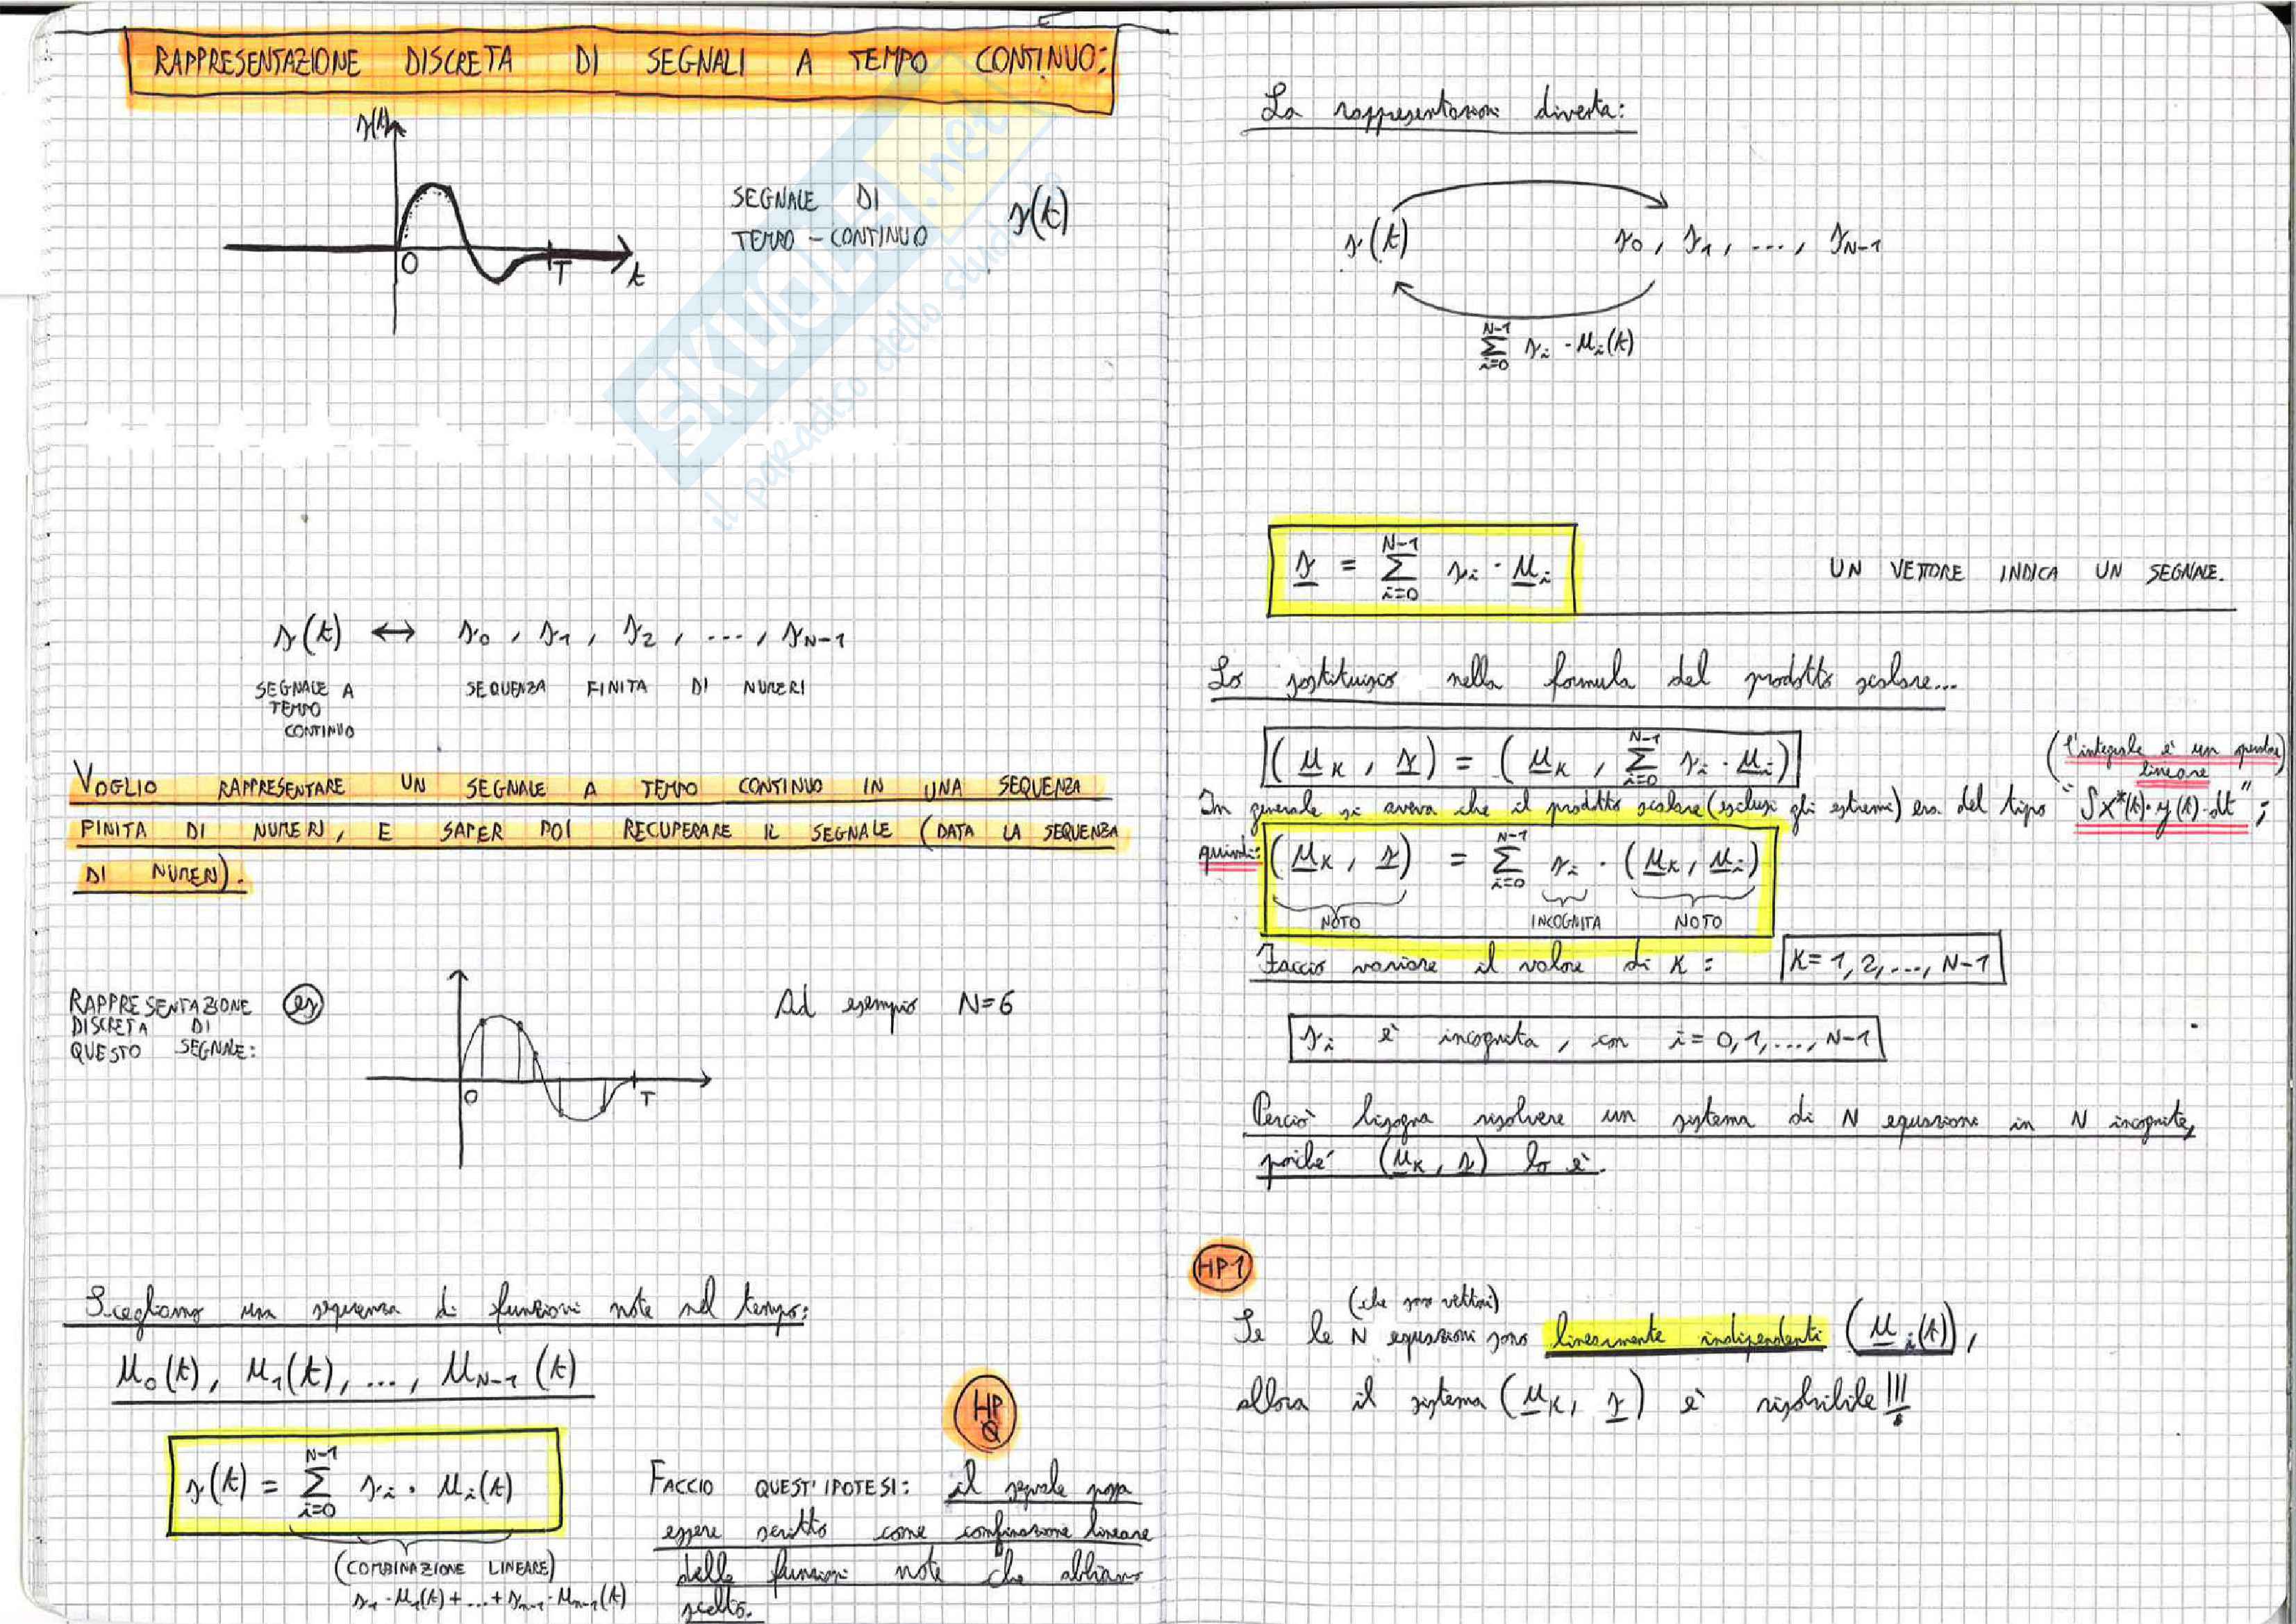 RAPPRESENTAZIONE DISCRETA DI SEGNALI A TEMPO CONTINUO:
s(t)
O T t
SEGNALE DI
TEMPO - CONTINUO s(t)
SKUOLA.net
il paradiso dello studente
s(t) ↔ s0, s1, s2, ..., sN-1
SEGNALE A SEQUENZA FINITA DI NUMERI
TEMPO
CONTINUO
VOGLIO RAPPRESENTARE UN SEGNALE A TEMPO CONTINUO IN UNA SEQUENZA
FINITA DI NUMERI, E SAPER POI RECUPERARE IL SEGNALE (DATA LA SEQUENZA
DI NUMERI).
RAPPRESENTAZIONE es
DISCRETA DI
QUESTO SEGNALE:
Ad esempio N=6
O T
Scegliamo una sequenza di funzioni note nel tempo:
μ0(t), μ1(t), ..., μN-1(t)
s(t) = Σ_{i=0}^{N-1} si · μi(t)
(COMBINAZIONE LINEARE)
s1 · μ1(t) + ... + sn-1 · μn-1(t)
HP
FACCIO QUEST'IPOTESI: il segnale possa
essere scritto come combinazione lineare
delle funzioni note che abbiamo
scelto.
La rappresentazione diventa:
s(t) s0, s1, ..., sN-1
Σ_{i=0}^{N-1} si · μi(t)
s = Σ_{i=0}^{N-1} si · μi UN VETTORE INDICA UN SEGNALE.
Lo sostituisco nella formula del prodotto scalare...
(μK, s) = (μK, Σ_{i=0}^{N-1} si · μi)
(l'integrale è un operatore
lineare)
In generale si aveva che il prodotto scalare (esclusi gli estremi) era del tipo "∫x*(t)·y(t)·dt";
quindi: (μK, s) = Σ_{i=0}^{N-1} si · (μK, μi)
NOTO INCOGNITA NOTO
Faccio variare il valore di K: K=1, 2, ..., N-1
si è incognita, con i=0,1,...,N-1
Perciò bisogna risolvere un sistema di N equazioni in N incognite,
poiché (μK, s) lo è.
HP1
(che sono vettori)
Se le N equazioni sono linearmente indipendenti (μi(t)),
allora il sistema (μK, s) è risolvibile!!!